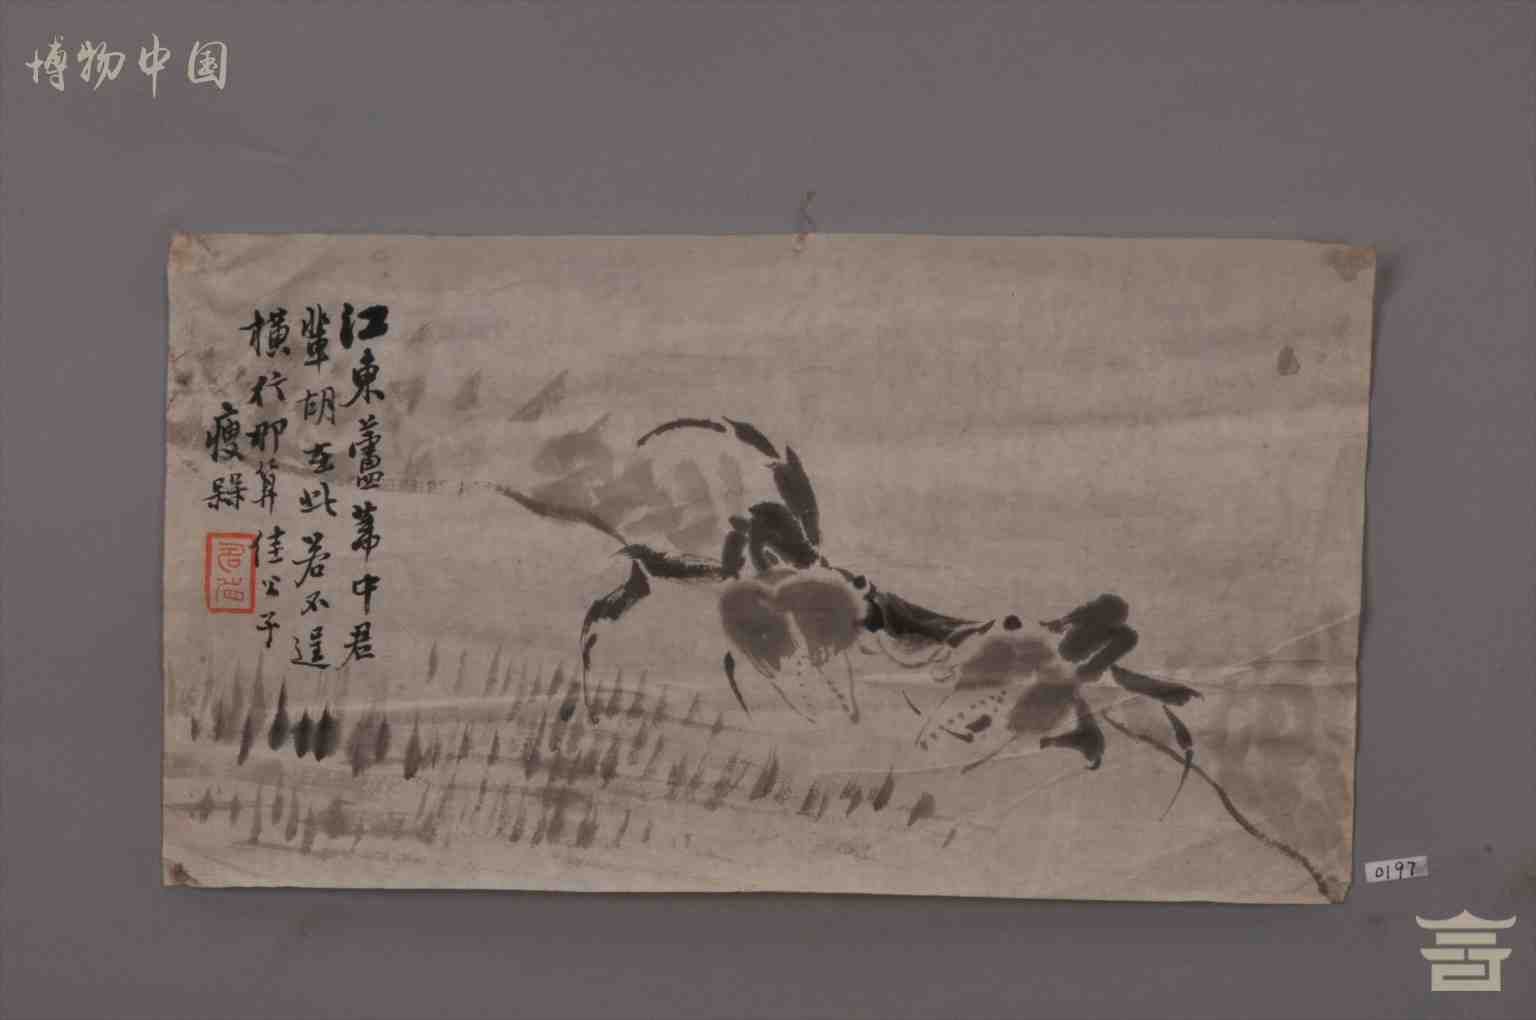 博物中国
江東蘆葦中君
輩胡在此若不逞
橫行那算佳公子
瘦
0197